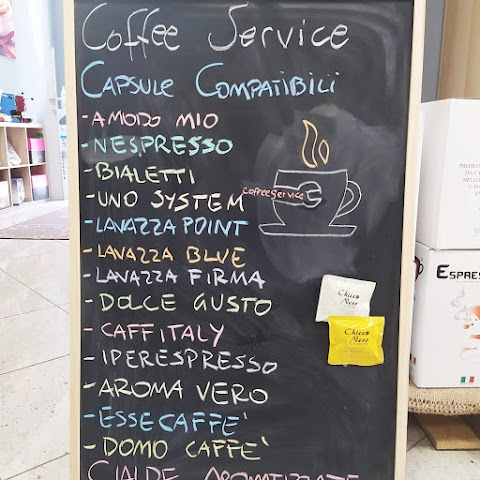 Coffee Service
CAPSULE COMPATIBILI
-A MODO MIO
-NESPRESSO
-BIALETTI
-UNO SYSTEM
-LAVAZZA POINT
-LAVAZZA BLUE
-LAVAZZA FIRMA
-DOLCE GUSTO
-CAFFITALY
-IPERESPRESSO
-AROMA VERO
-ESSECAFFE'
-DOMO CAFFE'
CIALDE AROMATIZZATE
CoffeeService
Chicco
Nero
Chicco
Nero
PRODOT
ESPRES